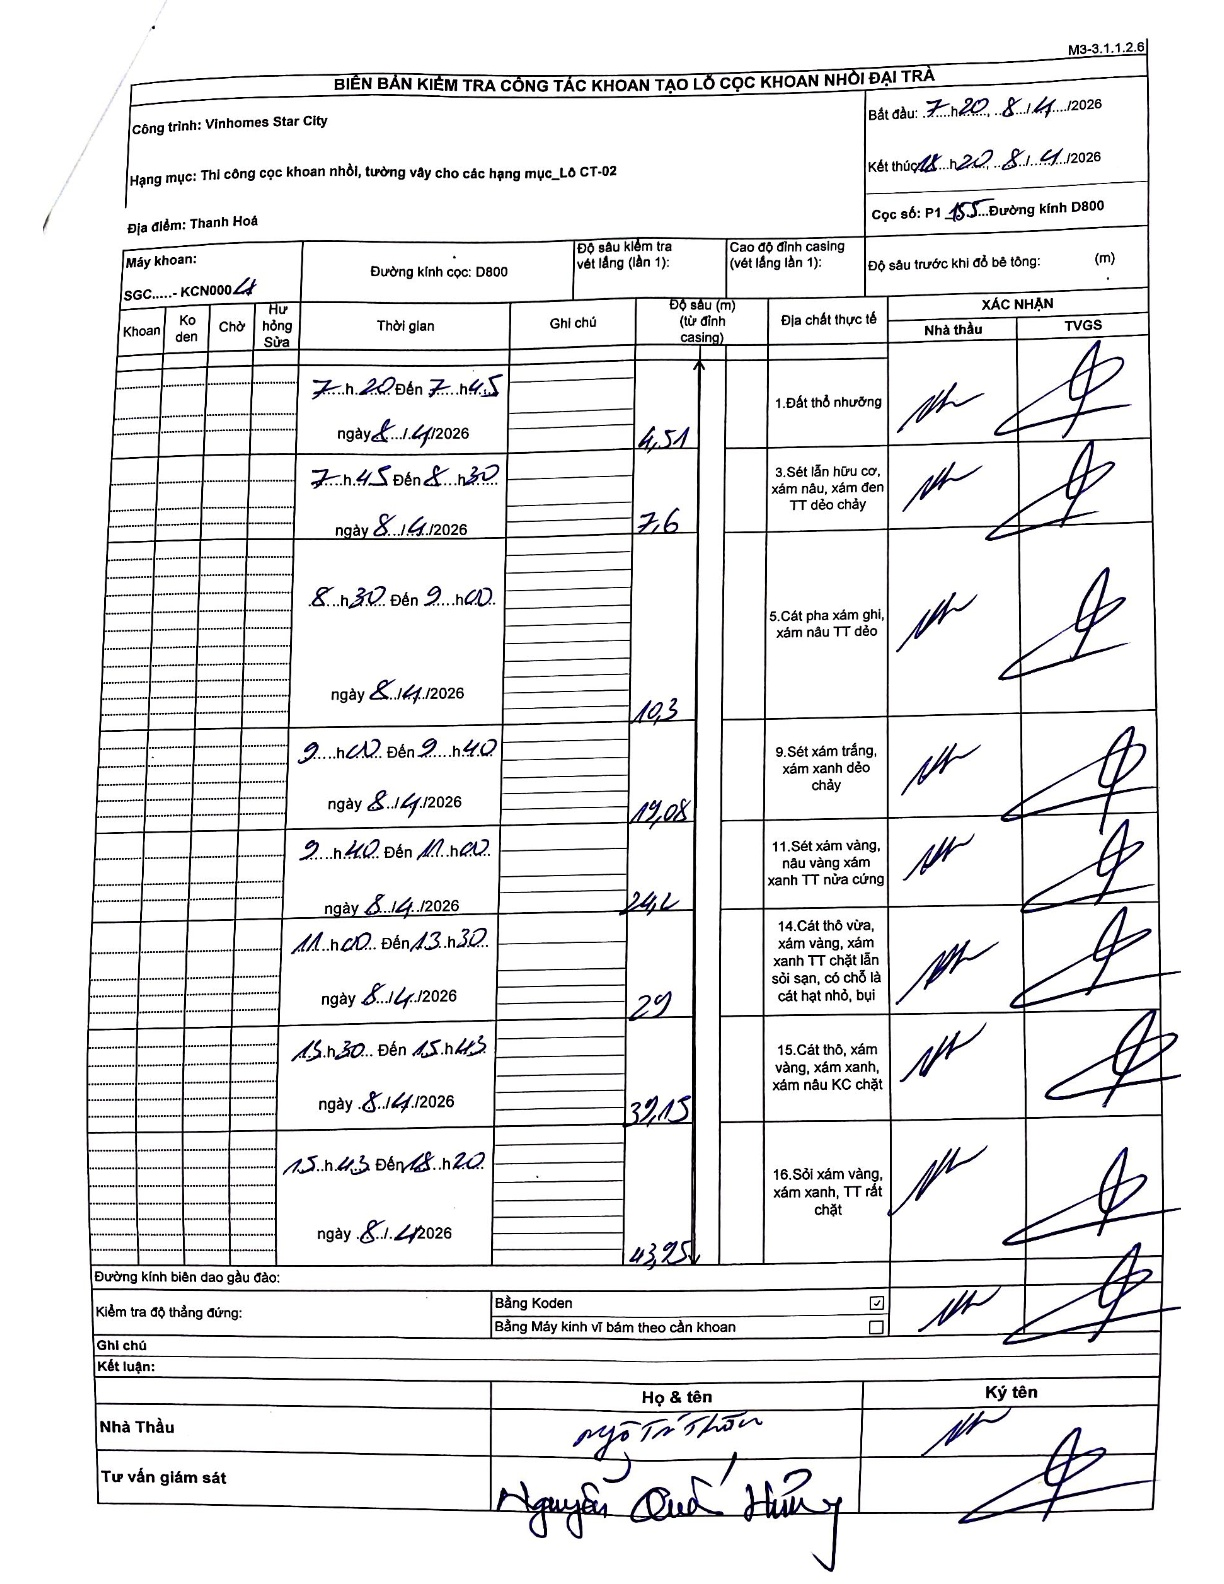 M3-3.1.1.2.6
BIÊN BẢN KIỂM TRA CÔNG TÁC KHOAN TẠO LỖ CỌC KHOAN NHỒI ĐẠI TRÀ
Công trình: Vinhomes Star City
Hạng mục: Thi công cọc khoan nhồi, tường vây cho các hạng mục_Lô CT-02
Địa điểm: Thanh Hoá
Bắt đầu: 7 h 20, 8/4/2026
Kết thúc 18 h 20 8/4/2026
Cọc số: P1 155 Đường kính D800
Máy khoan:
SGC.....- KCN0004
Đường kính cọc: D800
Độ sâu kiểm tra
vét lắng (lần 1):
Cao độ đỉnh casing
(vét lắng lần 1):
Độ sâu trước khi đổ bê tông: (m)
Khoan
Ko
den
Chờ
Hư
hỏng
Sửa
Thời gian
Ghi chú
Độ sâu (m)
(từ đỉnh
casing)
Địa chất thực tế
XÁC NHẬN
Nhà thầu
TVGS
7 h 20 Đến 7 h 45
ngày 8/4/2026
4,51
1.Đất thổ nhưỡng
7 h 45 Đến 8 h 30
ngày 8/4/2026
7,6
3.Sét lẫn hữu cơ,
xám nâu, xám đen
TT dẻo chảy
8 h 30 Đến 9 h 00
ngày 8/4/2026
10,3
5.Cát pha xám ghi,
xám nâu TT dẻo
9 h 00 Đến 9 h 40
ngày 8/4/2026
19,08
9.Sét xám trắng,
xám xanh dẻo
chảy
9 h 40 Đến 11 h 00
ngày 8/4/2026
24,2
11.Sét xám vàng,
nâu vàng xám
xanh TT nửa cứng
11 h 00 Đến 13 h 30
ngày 8/4/2026
29
14.Cát thô vừa,
xám vàng, xám
xanh TT chặt lẫn
sỏi sạn, có chỗ là
cát hạt nhỏ, bụi
13 h 30 Đến 15 h 43
ngày 8/4/2026
39,15
15.Cát thô, xám
vàng, xám xanh,
xám nâu KC chặt
15 h 43 Đến 18 h 20
ngày 8/4/2026
43,25
16.Sỏi xám vàng,
xám xanh, TT rất
chặt
Đường kính biên dao gầu đào:
Kiểm tra độ thẳng đứng:
Bằng Koden ☑
Bằng Máy kinh vĩ bám theo cần khoan ☐
Ghi chú
Kết luận:
Họ & tên
Ký tên
Nhà Thầu
Ngô Trí Thân
Tư vấn giám sát
Nguyễn Quá Hưng